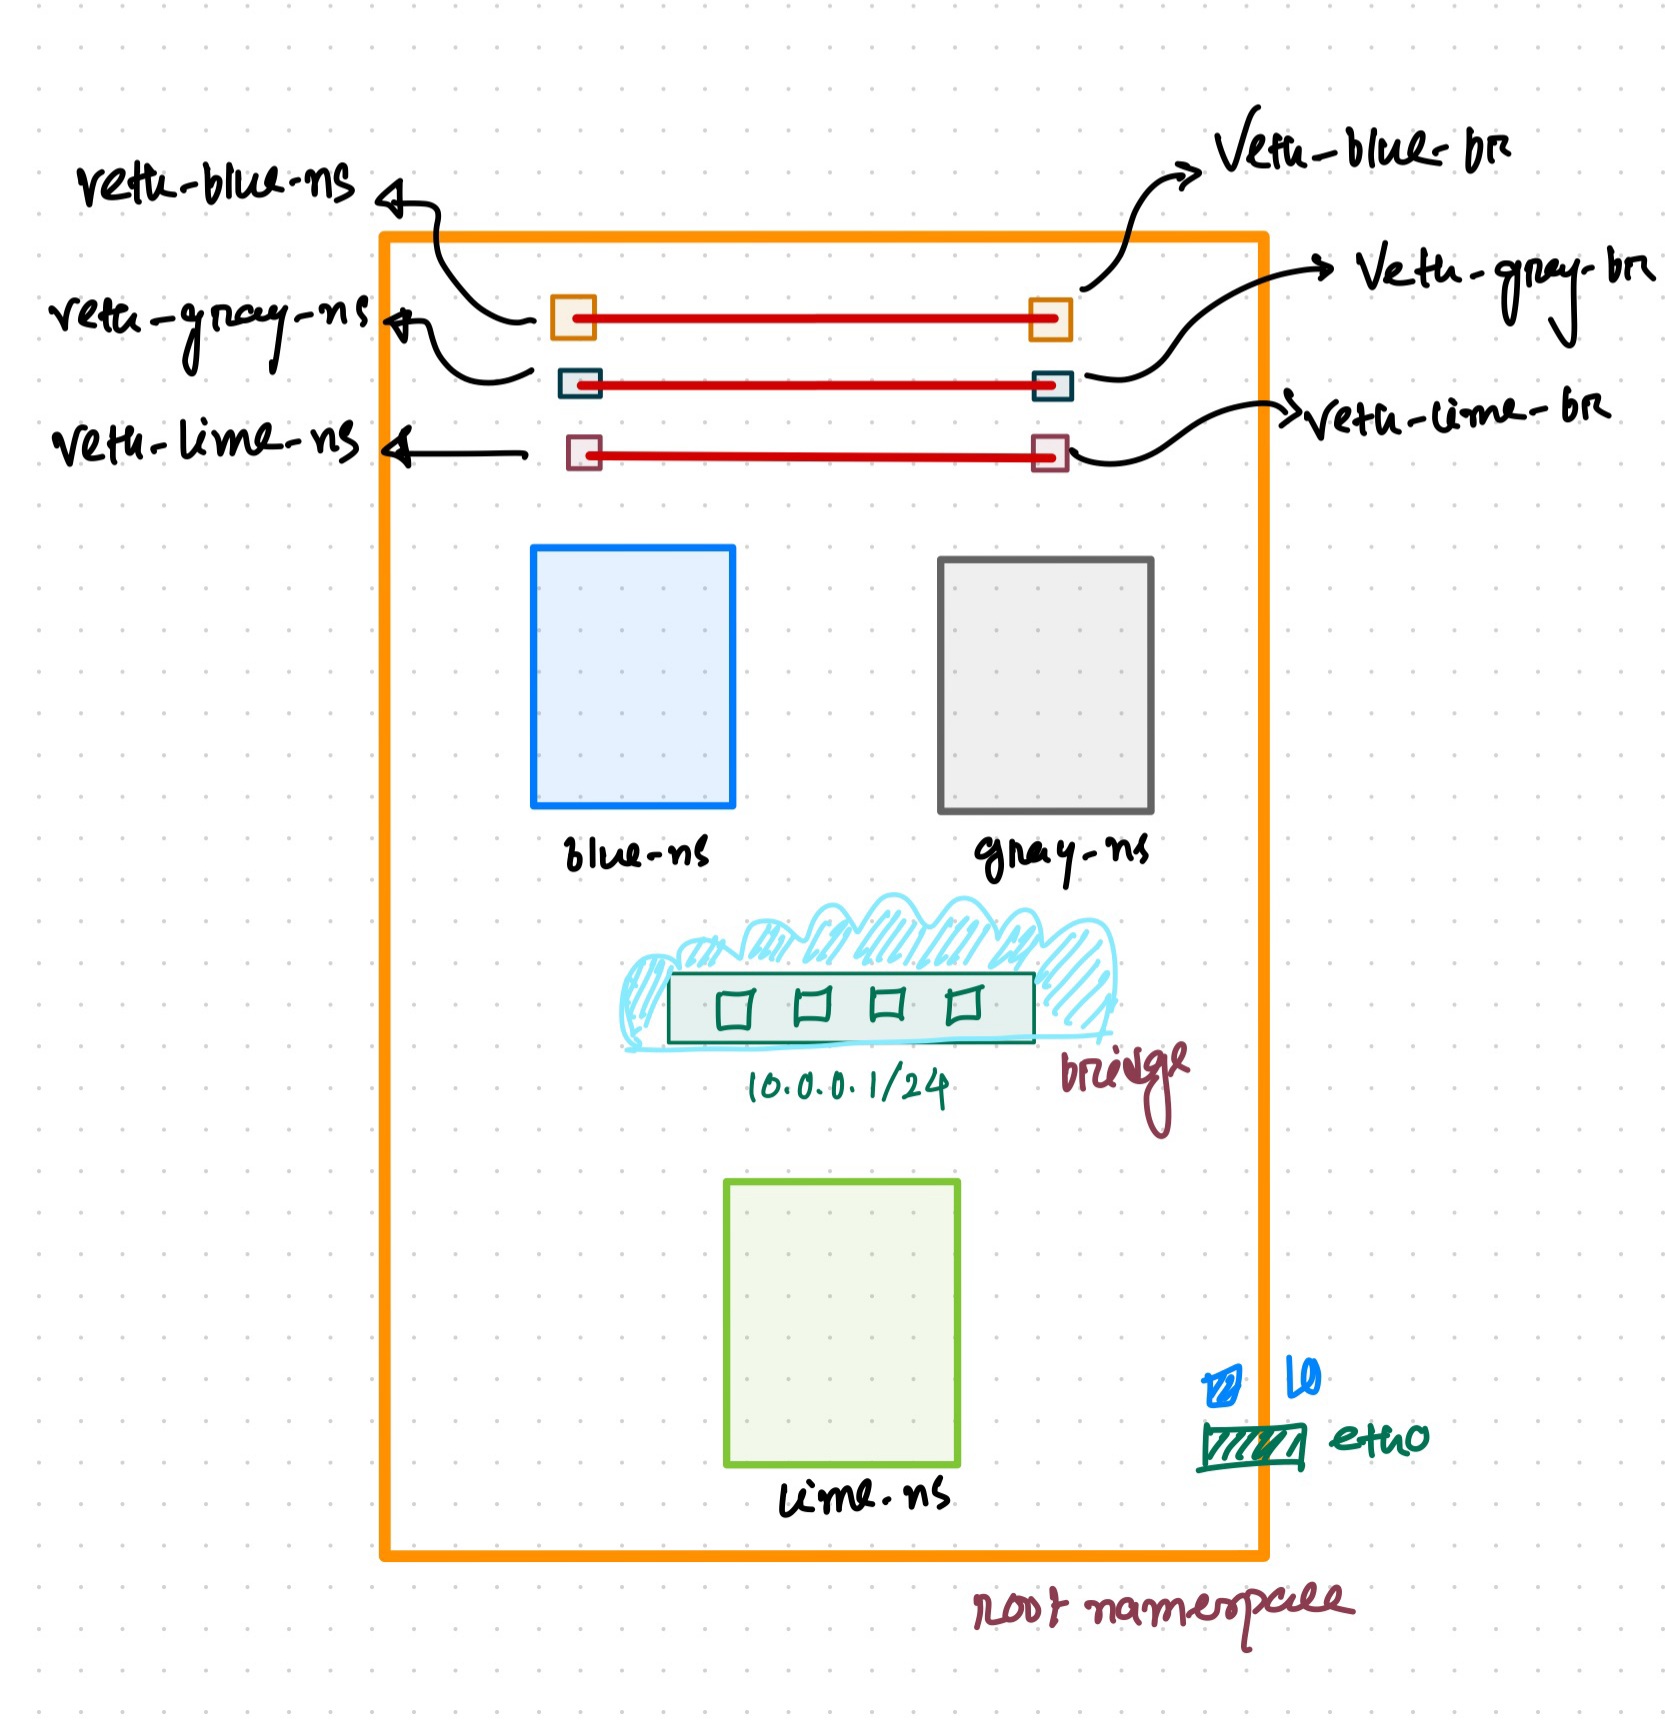 veth-blue-ns
Veth-blue-br
veth-gray-ns
Veth-gray-br
veth-lime-ns
veth-lime-br
blue-ns
gray-ns
10.0.0.1/24
bridge
lime-ns
lo
eth0
root namespace